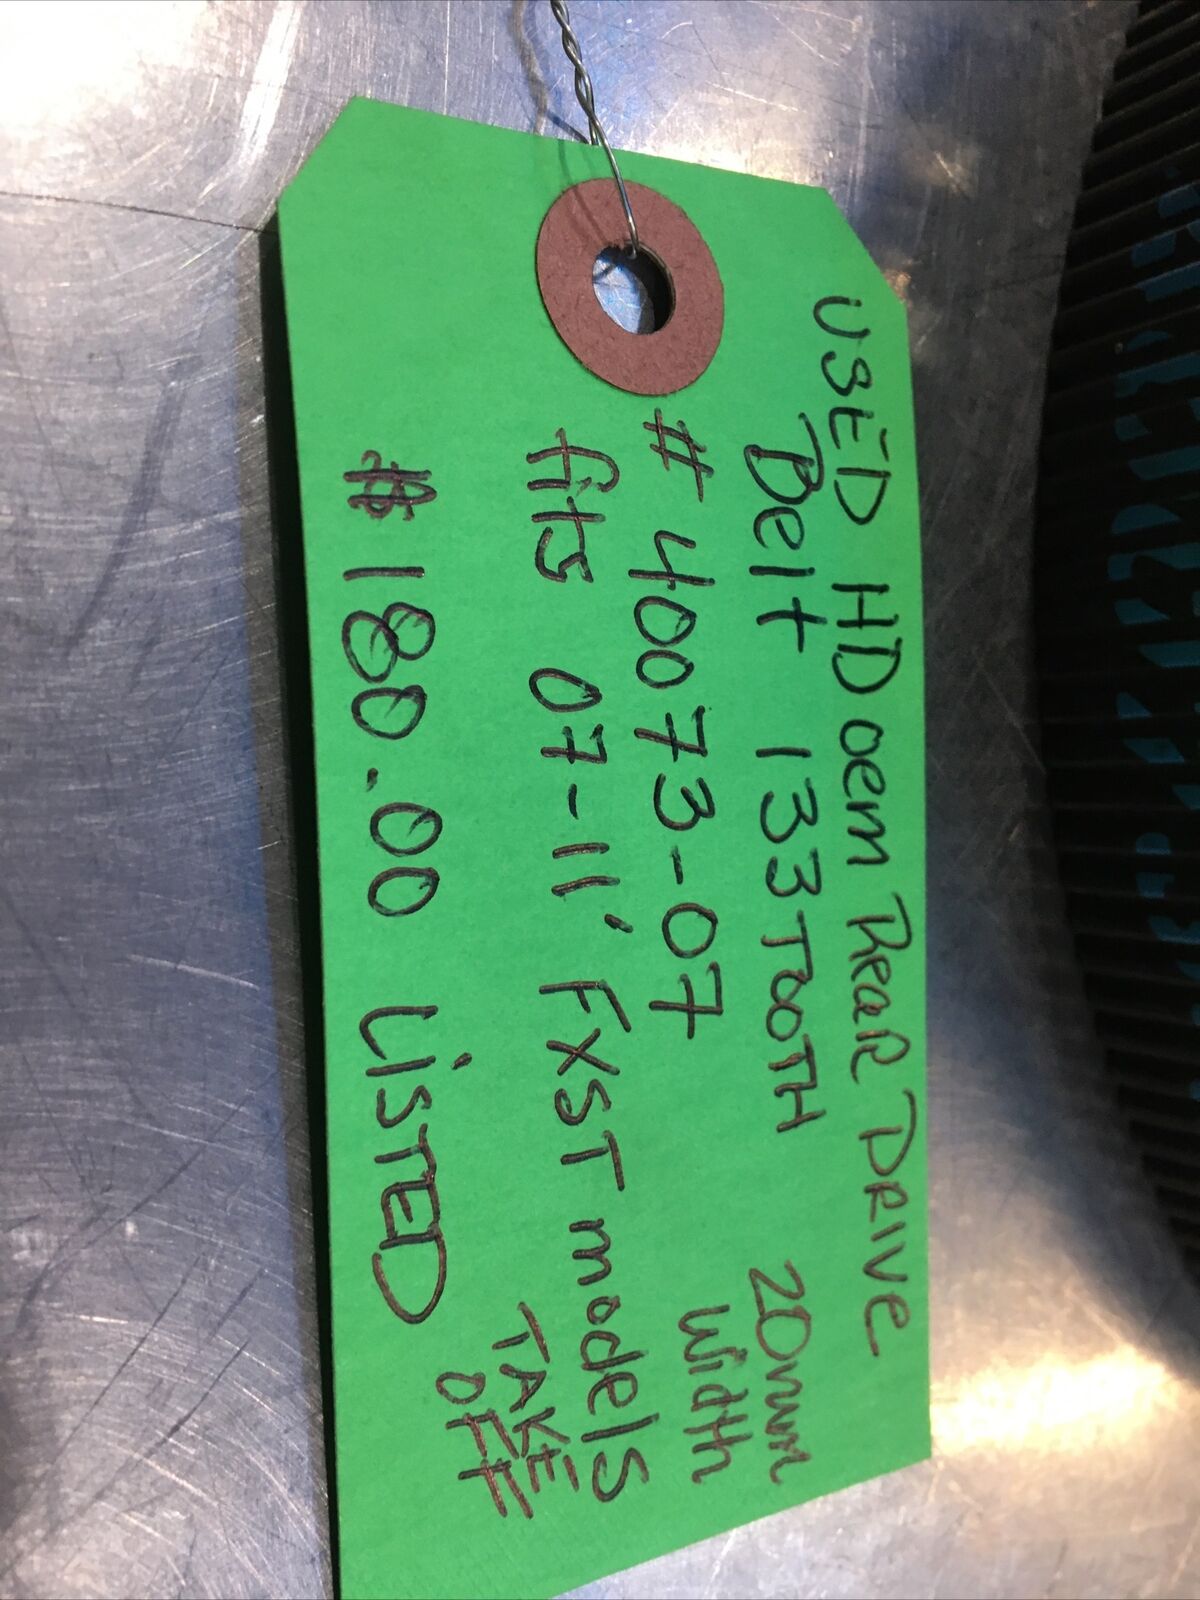 USED HD oem Rear DRIVE
Belt 133 TOOTH 20mm
# 40073-07 width
fits 07-11' FXST models
TAKE
OFF
$180.00 LiSTED